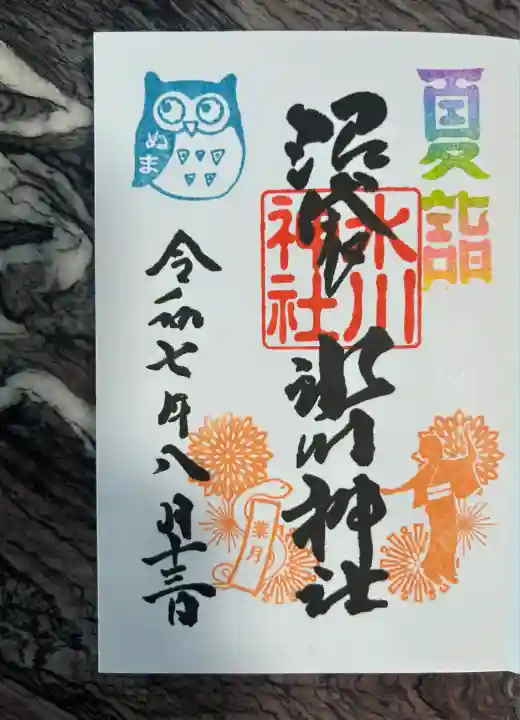 夏詣
沼袋 氷川神社
氷川
神社
ぬま
令和七年八月十三日
葉月